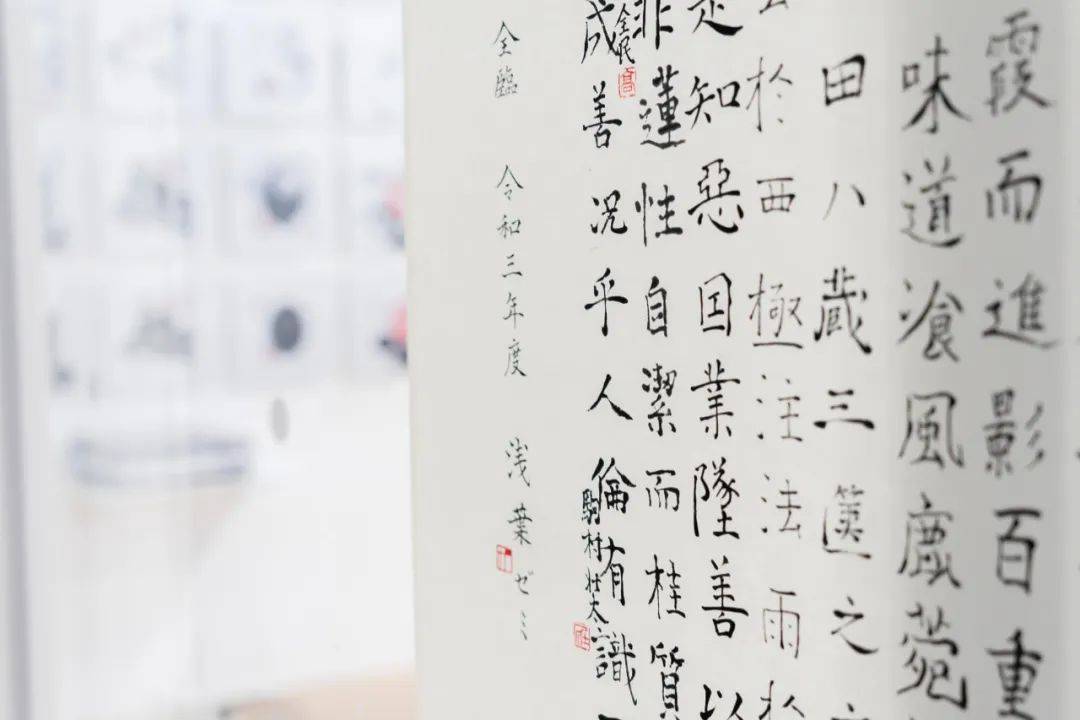 霞而進影百重
味道飡風鹿菀
田八蔵三篋之
於西極注法雨於
是知惡因業墜善以
非蓮性自潔而桂質
成善况乎人倫有識
駒村壮太
全臨 令和三年度 浅葉ゼミ